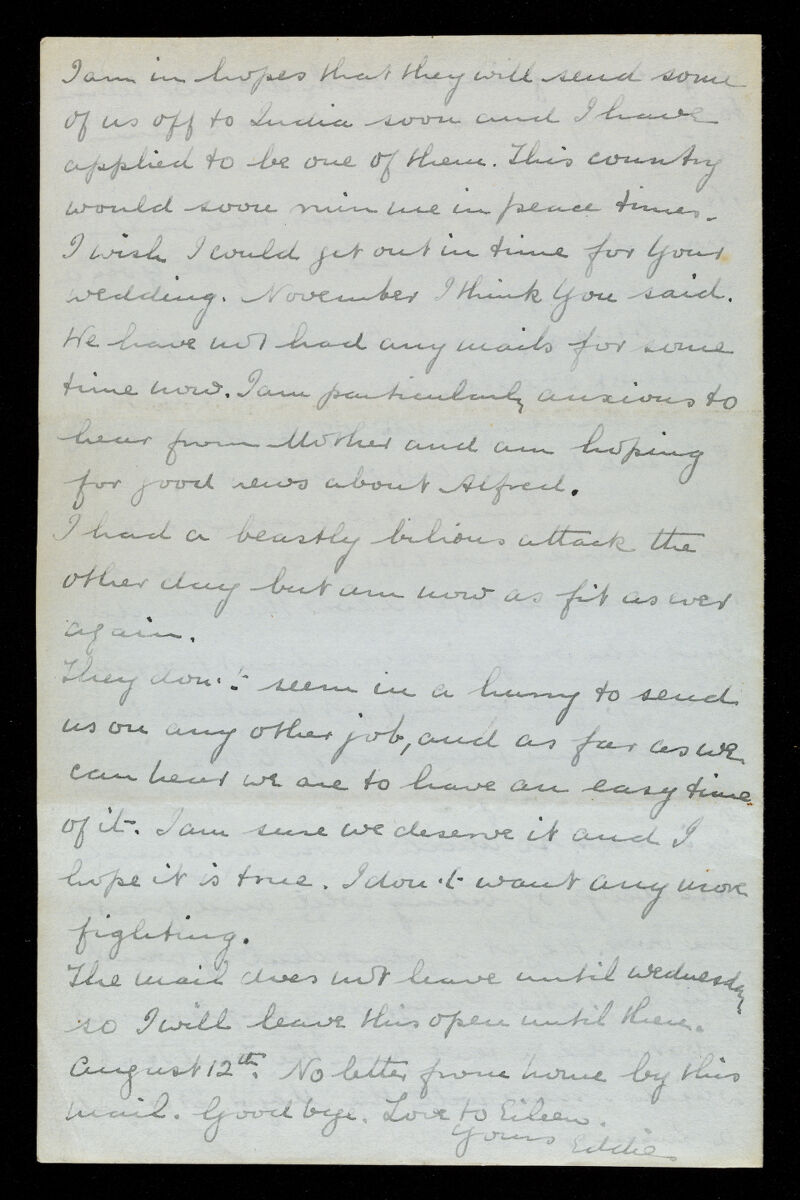 I am in hopes that they will send some
of us off to India soon and I have
applied to be one of them. This country
would soon ruin me in peace times.
I wish I could get out in time for your
wedding. November I think you said.
We have not had any mails for some
time now. I am particularly anxious to
hear from Mother and am hoping
for good news about Alfred.
I had a beastly bilious attack the
other day but am now as fit as ever
again.
They don't seem in a hurry to send
us on any other job, and as far as we
can hear we are to have an easy time
of it. I am sure we deserve it and I
hope it is true. I don't want any more
fighting.
The mail does not leave until wednesday
so I will leave this open until then.
August 12th. No letter from home by this
mail. Good bye. Love to Eileen.
Yours Eddie.